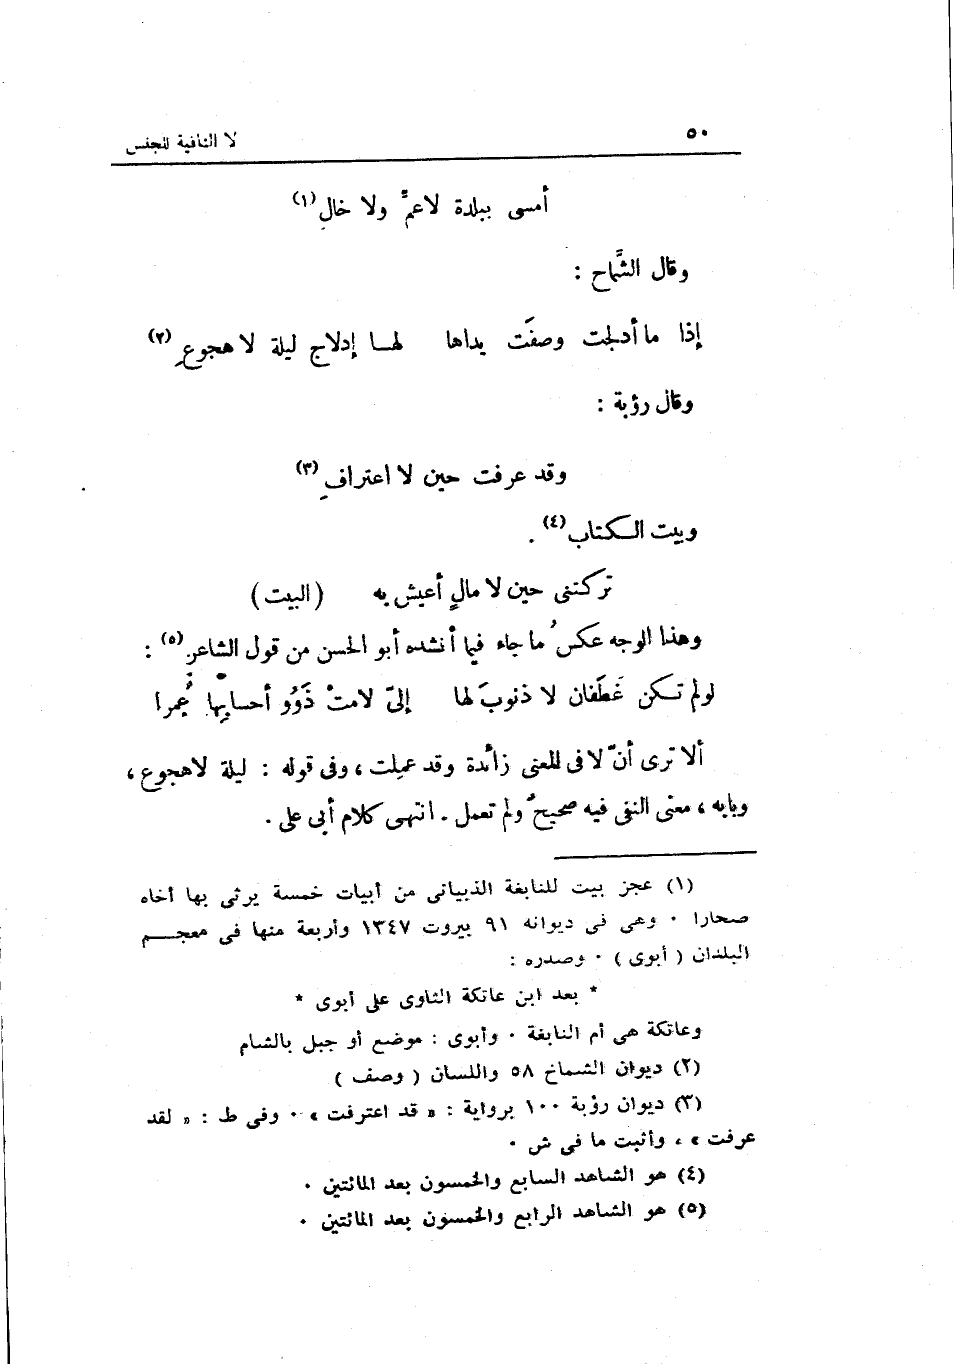 ٥٠
لا النافية للجنس
أمسى ببلدة لاعمٍّ ولا خالِ(١)
وقال الشَّماح :
إذا ما أدلجت وصفَت يداها لهـا إدلاج ليلة لا هجوعِ(٢)
وقال رؤبة :
وقد عرفت حين لا اعترافِ(٣)
وبيت الـكتاب(٤) .
تركتنى حين لا مالٍ أعيش به (البيت)
وهذا الوجه عكسُ ما جاء فيما أنشده أبو الحسن من قول الشاعر(٥) :
لولم تـكن غَطَفان لا ذنوبَ لها إلىّ لامتْ ذَوُو أحسابِها عُمرا
ألا ترى أنّ لا فى المعنى زائدة وقد عمِلت ، وفى قوله : ليلة لاهجوع ،
وبابه ، معنى النفى فيه صحيحٌ ولم تعمل . انتهى كلام أبى على .
(١) عجز بيت للنابغة الذبيانى من أبيات خمسة يرثى بها أخاه
صحارا ٠ وهى فى ديوانه ٩١ بيروت ١٣٤٧ وأربعة منها فى معجـــم
البلدان ( أبوى ) ٠ وصدره :
* بعد ابن عاتكة الثاوى على أبوى *
وعاتكة هى أم النابغة ٠ وأبوى : موضع أو جبل بالشام
(٢) ديوان الشماخ ٥٨ واللسان ( وصف )
(٣) ديوان رؤبة ١٠٠ برواية : « قد اعترفت » ٠ وفى ط : « لقد
عرفت » ، وأثبت ما فى ش ٠
(٤) هو الشاهد السابع والخمسون بعد المائتين ٠
(٥) هو الشاهد الرابع والخمسون بعد المائتين ٠